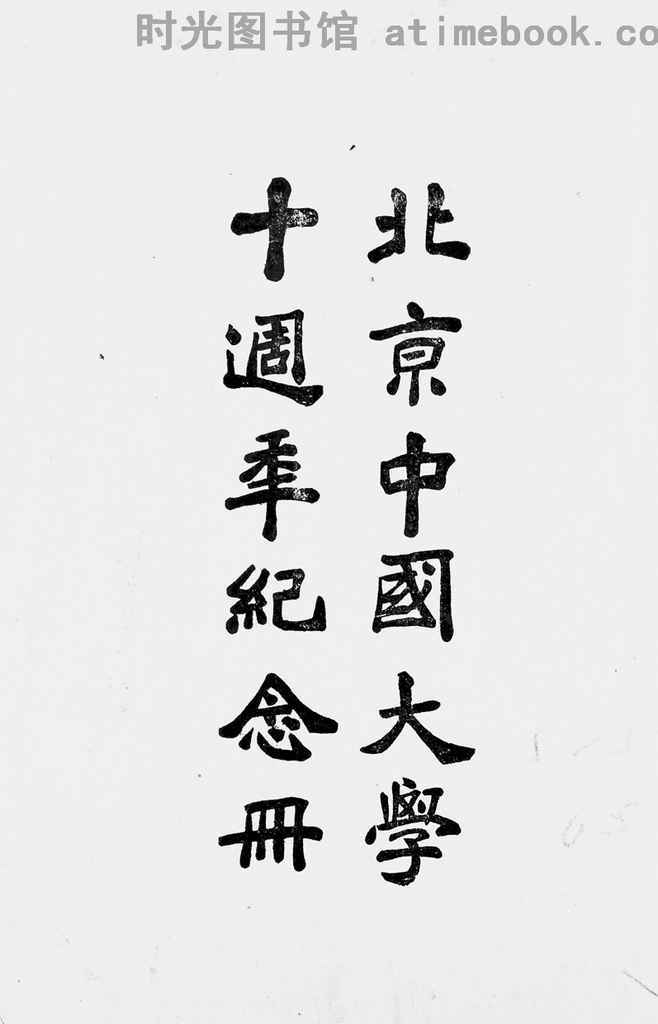 时光图书馆 atimebook.co
北京中國大學
十週年紀念冊